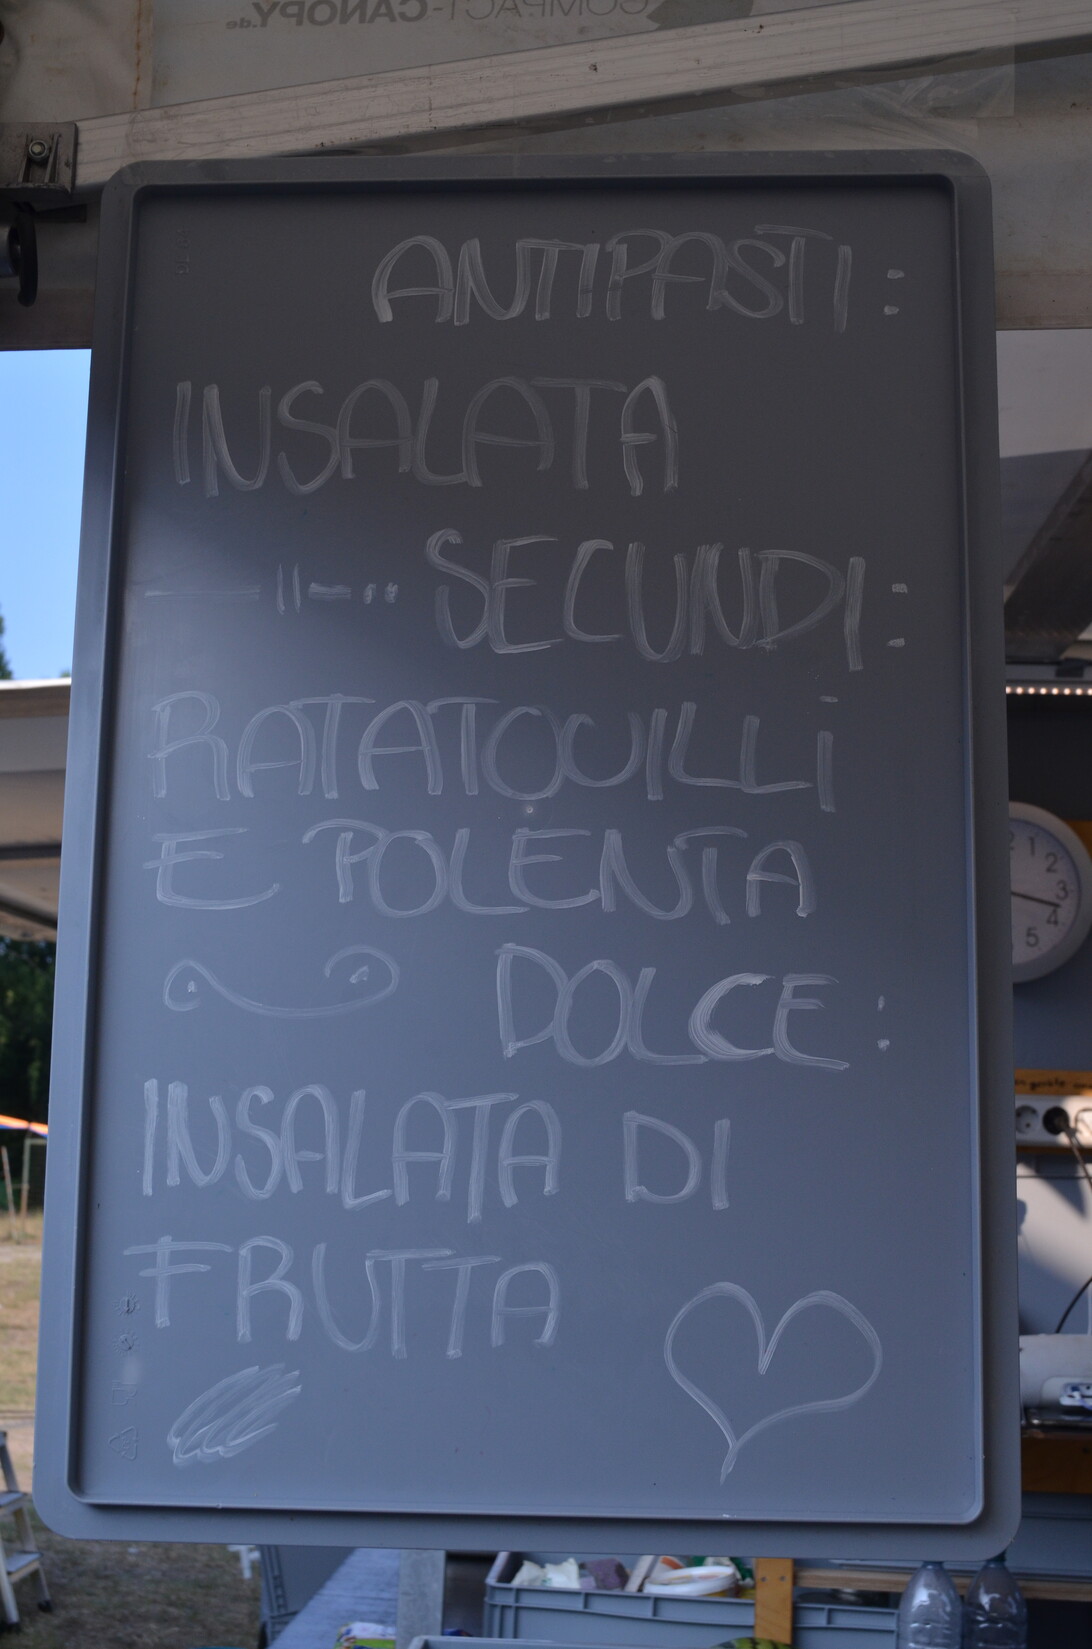 COMPACT-CANOPY.de
ANTIPASTI:
INSALATA
SECUNDI:
RATATOUILLI
E POLENTA
DOLCE:
INSALATA DI
FRUTTA
1
2
3
4
5